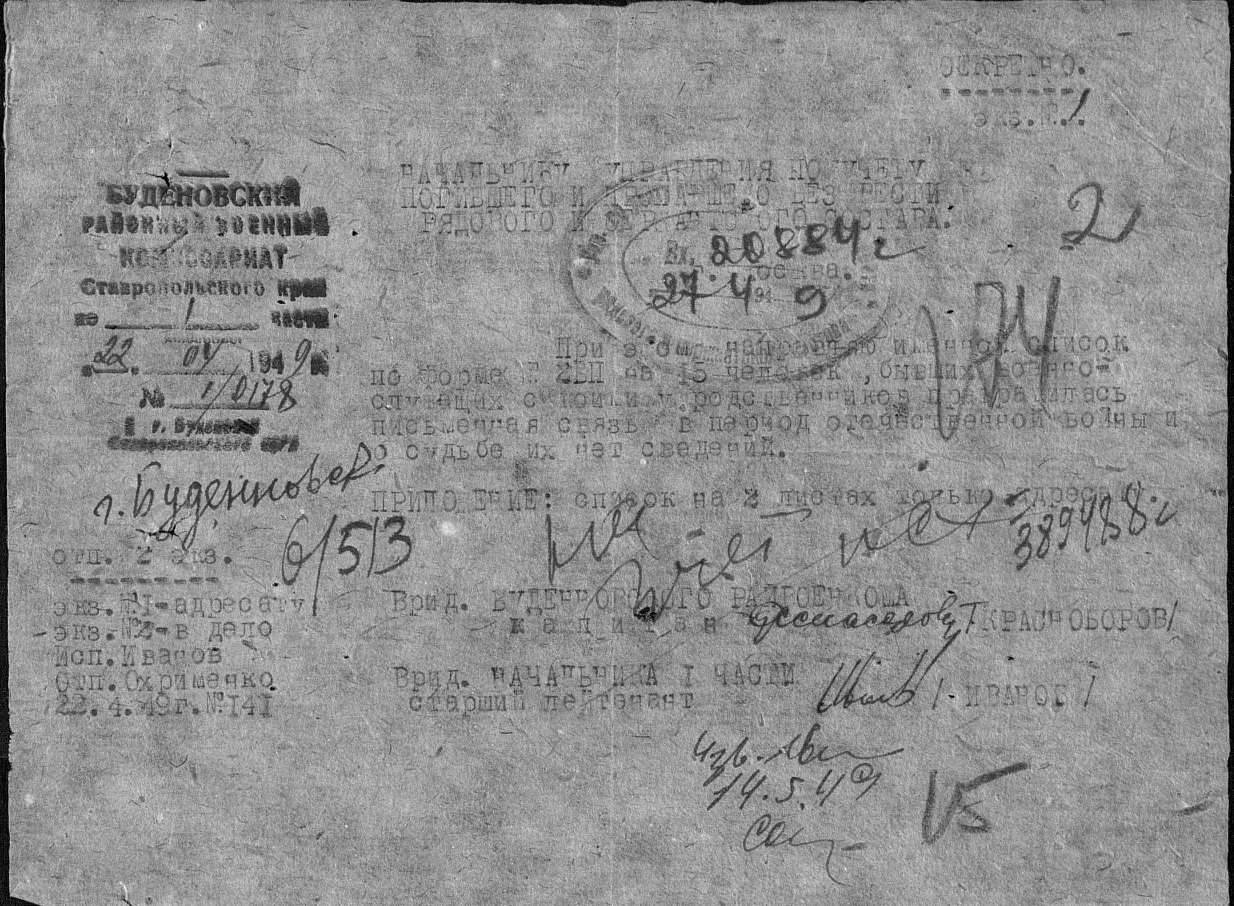 СЕКРЕТНО.
экз.№1.
НАЧАЛЬНИКУ УПРАВЛЕНИЯ ПО УЧЕТУ
ПОГИБШЕГО И ПРОПАВШЕГО БЕЗ ВЕСТИ
РЯДОВОГО И СЕРЖАНТСКОГО СОСТАВА.
2
Вх. 20884 г
Москва.
27. 4 194 9
БУДЕНОВСКИЙ
РАЙОННЫЙ ВОЕННЫЙ
КОМИССАРИАТ
Ставропольского края
по 1 части
22. 04 1949 г.
№ 1/0178
г. Буденновск
Ставропольского края
г. Буденновск.
При этом направляю именной список
по форме № 2БП на 15 человек, бывших военно-
служащих с коими у родственников прекратилась
письменная связь в период отечественной войны и
о судьбе их нет сведений.
ПРИЛОЖЕНИЕ: список на 2 листах только адресату
389488 г
6/513
отп. 2 экз.
экз.№1-адресату
экз.№2-в дело
Исп.Иванов
Отп.Охрименко
22.4.49г.№141
Врид. БУДЕННОВСКОГО РАЙВОЕНКОМА
капитан /КРАСНОБОРОВ/
Врид. НАЧАЛЬНИКА I ЧАСТИ
старший лейтенант /-ИВАНОВ/
14.5.49
15